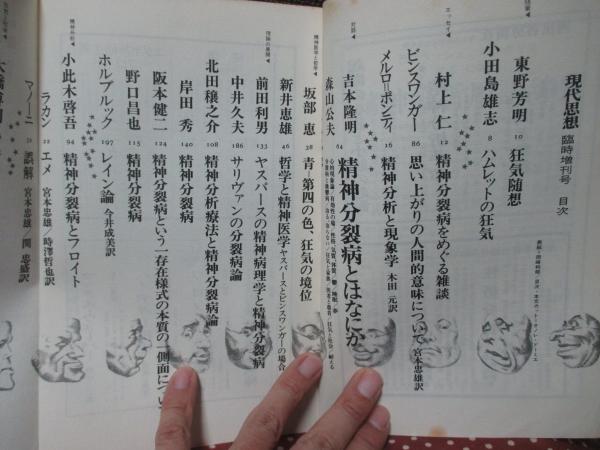 現代思想 臨時増刊号 目次
東野芳明 10 狂気随想
小田島雄志 7 ハムレットの狂気
エッセイ
村上 仁 12 精神分裂病をめぐる雑談
ビンスワンガー 86 思い上がりの人間的意味について 宮本忠雄訳
メルロ＝ポンティ 16 精神分析と現象学 木田 元訳
対談
吉本隆明
森山公夫 64 精神分裂病とはなにか
坂部 恵 38 青―第四の色、狂気の境位
精神医学と哲学
新井恵雄 46 哲学と精神医学 ヤスパースとビンスワンガーの場合
前田利男 133 ヤスパースの精神病理学と精神分裂病
理論の展開
中井久夫 186 サリヴァンの分裂病論
北田穣之介 108 精神分析療法と精神分裂病論
岸田 秀 140 精神分裂病
阪本健二 124 精神分裂病という一存在様式の本質の一側面につい
野口昌也 115 精神分裂病
ホルブルック 197 レイン論 今井成美訳
精神分析
小此木啓吾 94 精神分裂病とフロイト
ラカン 22 エメ 宮本忠雄／時澤哲也訳
マノーニ 誤解 宮本忠雄／関 忠盛訳